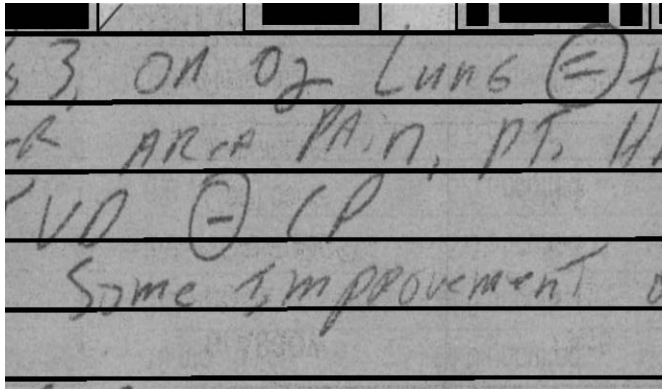 3, on O2 Lungs ⊜
AREA PAin, PT,
⊖ CP
Some Improvement